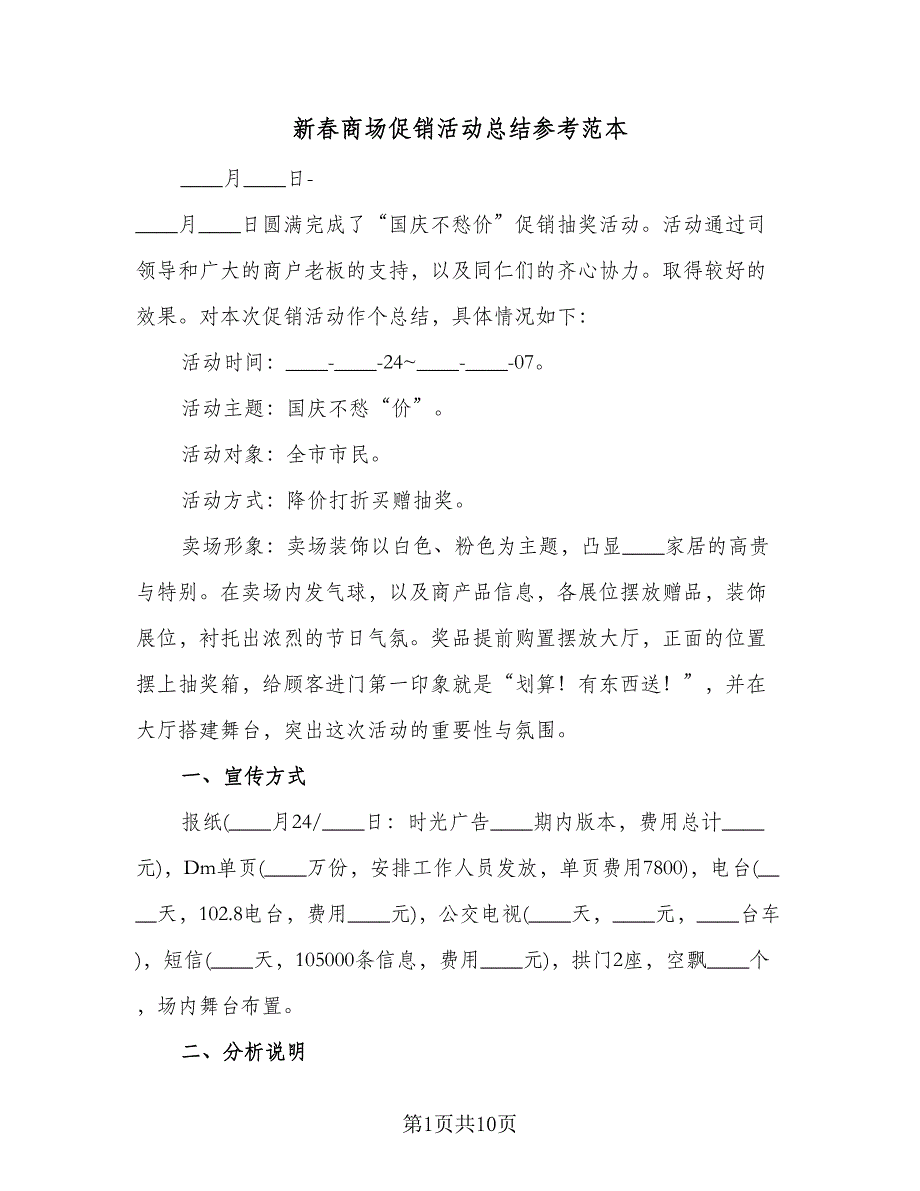 新春商场促销活动总结参考范本
____月____日-
____月____日圆满完成了“国庆不愁价”促销抽奖活动。活动通过司
领导和广大的商户老板的支持，以及同仁们的齐心协力。取得较好的
效果。对本次促销活动作个总结，具体情况如下：
活动时间：____-____-24~____-____-07。
活动主题：国庆不愁“价”。
活动对象：全市市民。
活动方式：降价打折买赠抽奖。
卖场形象：卖场装饰以白色、粉色为主题，凸显____家居的高贵
与特别。在卖场内发气球，以及商产品信息，各展位摆放赠品，装饰
展位，衬托出浓烈的节日气氛。奖品提前购置摆放大厅，正面的位置
摆上抽奖箱，给顾客进门第一印象就是“划算！有东西送！”，并在
大厅搭建舞台，突出这次活动的重要性与氛围。
一、宣传方式
报纸(____月24/____日：时光广告____期内版本，费用总计____
元)，Dm单页(____万份，安排工作人员发放，单页费用7800)，电台(__
__天，102.8电台，费用____元)，公交电视(____天，____元，____台车
)，短信(____天，105000条信息，费用____元)，拱门2座，空飘____个
，场内舞台布置。
二、分析说明
第1页共10页